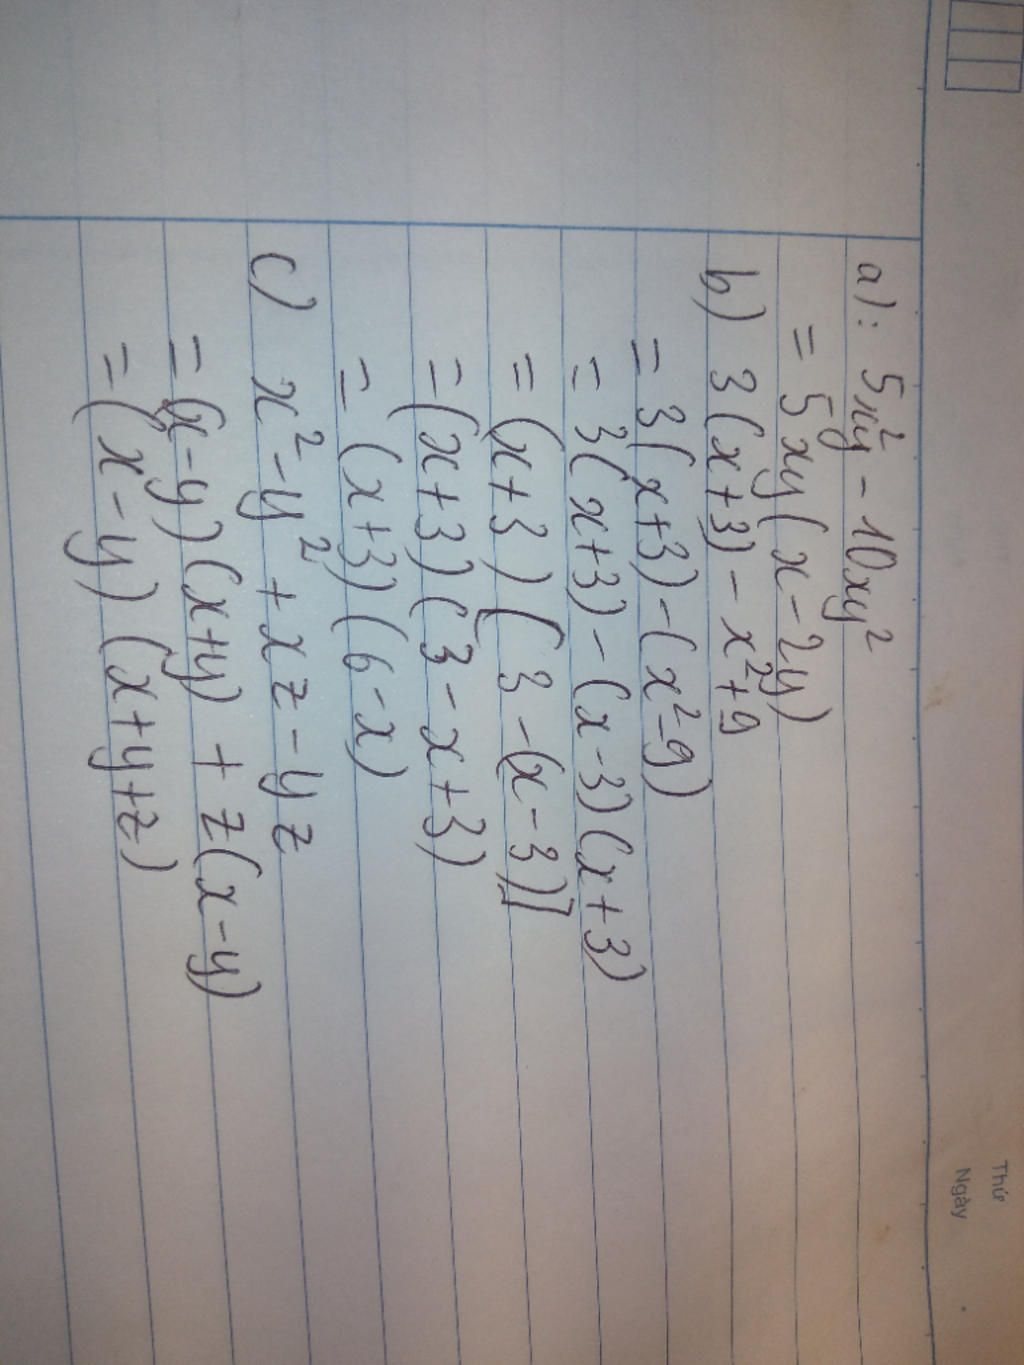 Thứ
Ngày
a): 5x²y - 10xy²
= 5xy(x - 2y)
b) 3(x+3) - x²+9
= 3(x+3) - (x²-9)
= 3(x+3) - (x-3)(x+3)
= (x+3)[3-(x-3)]
= (x+3)(3-x+3)
= (x+3)(6-x)
c) x²-y²+xz-yz
= (x-y)(x+y)+z(x-y)
= (x-y)(x+y+z)